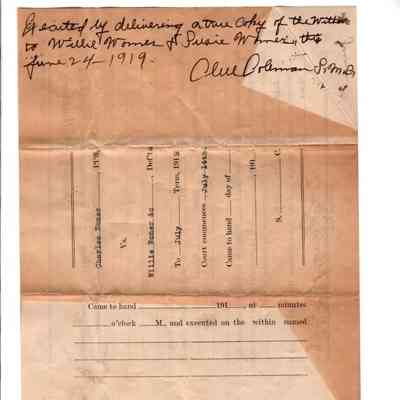 Executed by delivering a true copy of the within
to Willie Womer & Susie Womer, this
June 24 - 1919.
Charles Romer PCff,
Vs.
Willie Romer &c Def'ts
To July Term, 1919
Court commences July 14th.
Came to hand
day of 191
S. C.
Came to hand 191 , at minutes
o'clock M., and executed on the within named